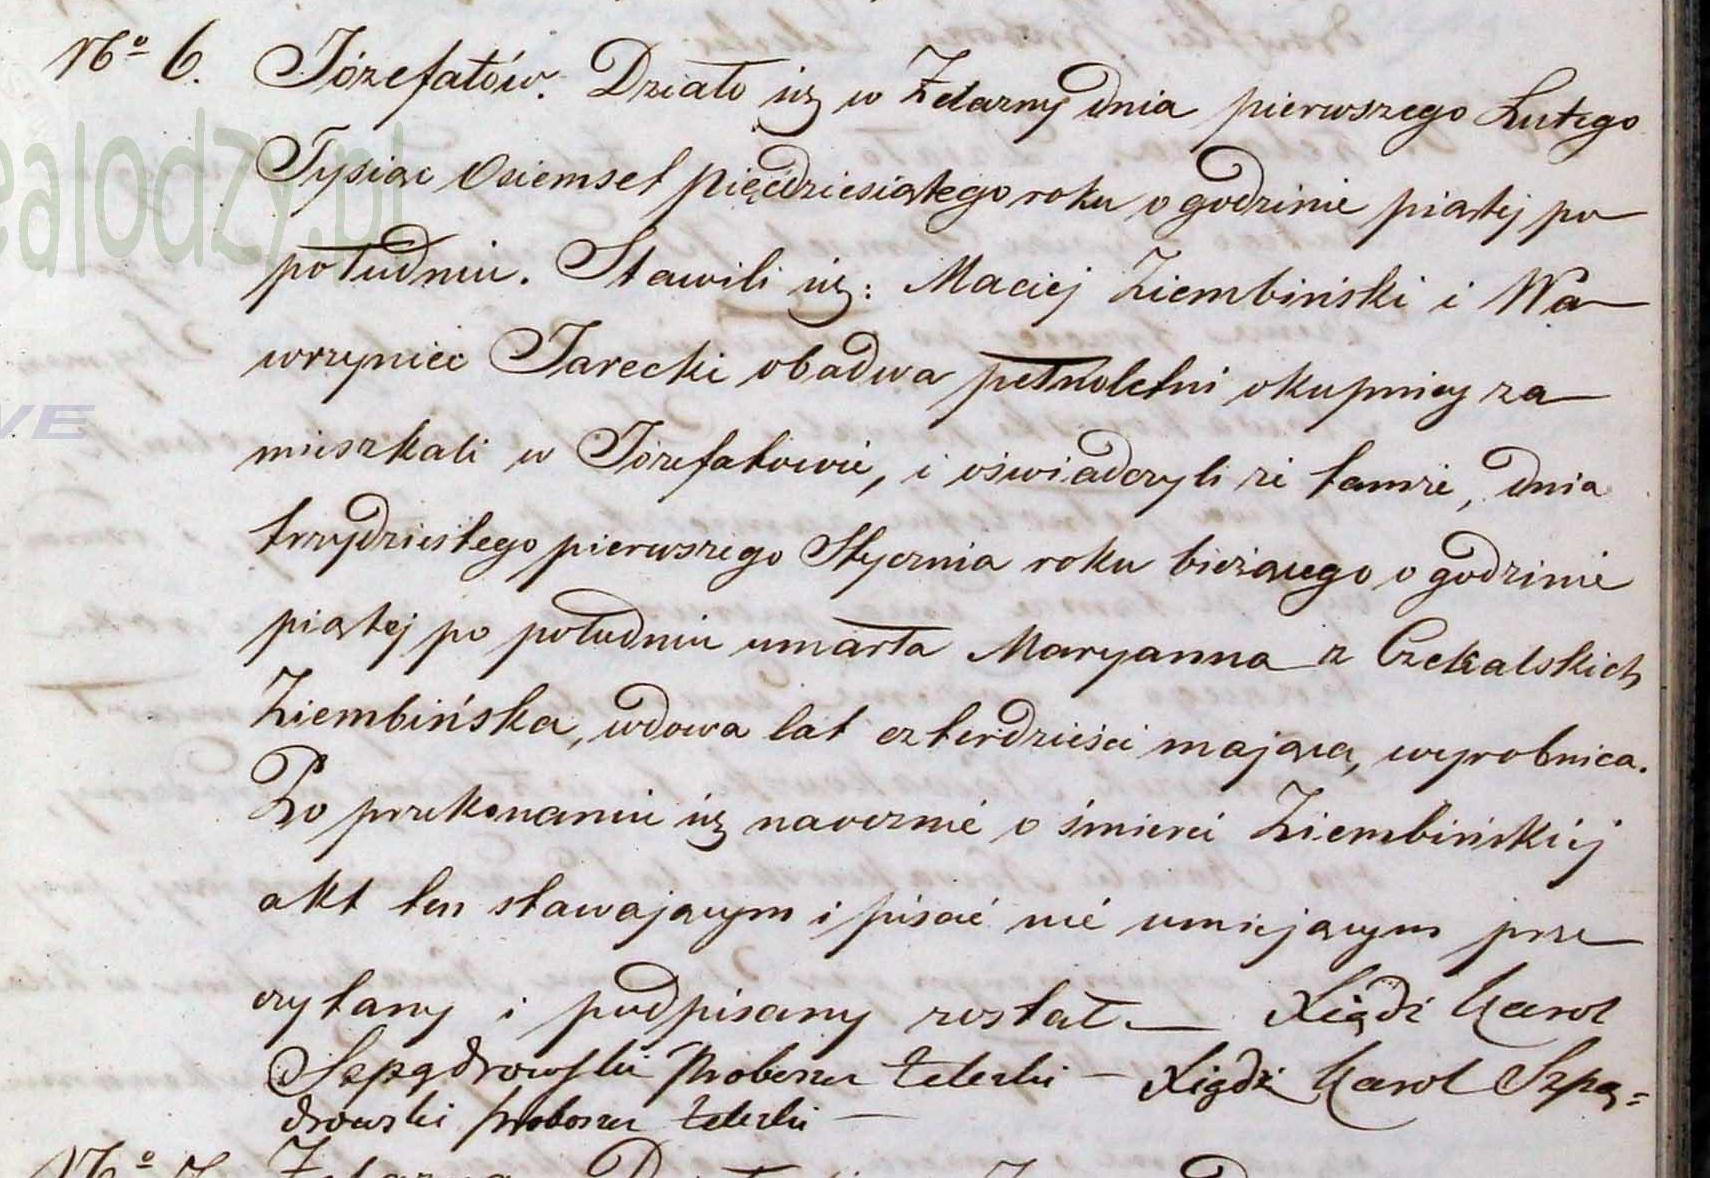 No 6. Józefatów. Działo się w Żelazny dnia pierwszego Lutego
Tysiąc Osiemset pięcdziesiątego roku o godzinie piątej po
południu. Stawili się: Maciej Ziembiński i Wa
wrzyniec Jarecki obadwa pełnoletni okupnicy za
mieszkali w Józefatowie, i oświadczyli że tamże, dnia
trzydziestego pierwszego Stycznia roku bieżącego o godzinie
piątej po południu umarła Maryanna z Czekalskich
Ziembińska, wdowa lat czterdzieści mająca, wyrobnica.
Po przekonaniu się naocznie o śmierci Ziembińskiéj
akt ten stawającym i pisać nie umiejącym prze
czytany i podpisany został. Xiądz Karol
Szpądrowski Proboszcz Żeleski — Xiądz Karol Szpą=
drowski proboszcz Żeleski —
No 7. Żelazna
ealodzy.pl
VE